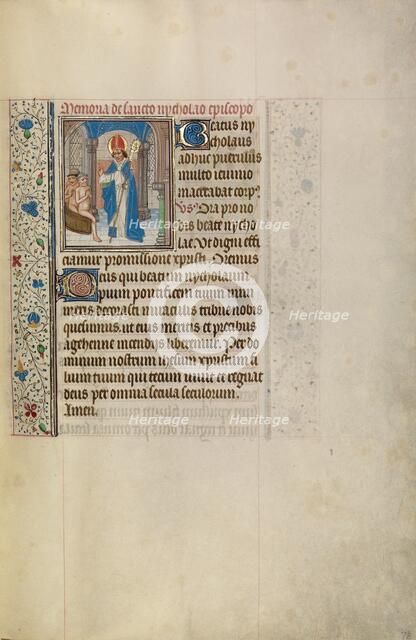 Memoria de sancto nycholao episcopo
Beatus ny
cholaus
adhuc puerulus
multo ieiunio
macerabat corp9
vs Ora pro no
bis beate nycho
lae. Ut digni effi
ciamur promissione xpristi. Oremus
Deus qui beatum nycholaum
pium pontificem tuum in nu
meris decorasti miraculis tribue nobis
quesumus. ut eius meritis et precibus
a gehenne incendijs liberemur. Per do
minum nostrum ihesum xpristum fi
lium tuum qui tecum viuit et regnat
deus per omnia secula seculorum.
Amen.
Heritage
Heritage
Heritage
Heritage